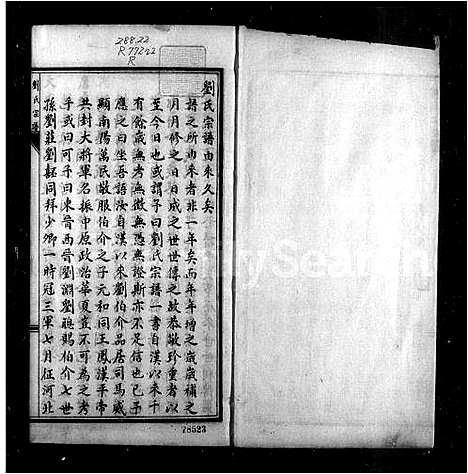 288.22
R7722
R
劉氏宗譜
劉氏宗譜由來久矣
譜之所由來者非一年矣而年年增之歲歲補之
明月修之日日成之世世傳之故恭敬珍重者以
至今日也或謂予曰劉氏宗譜一書自漢以來千
有餘歲無考無徵無憑無證斯亦不足信也已予
應之曰坐吾語汝自漢以來劉伯介品居司馬威
顯南陽萬民敬服伯介之子元和同王鳳漢平帝
共封大將軍名振中原政治華夏豈不可為之考
乎或曰可乎曰東晉西晉劉淵劉聰賜伯介七世
孫劉莊劉韜同拜少卿一時冠三軍七月征河北
FamilySearch
78523